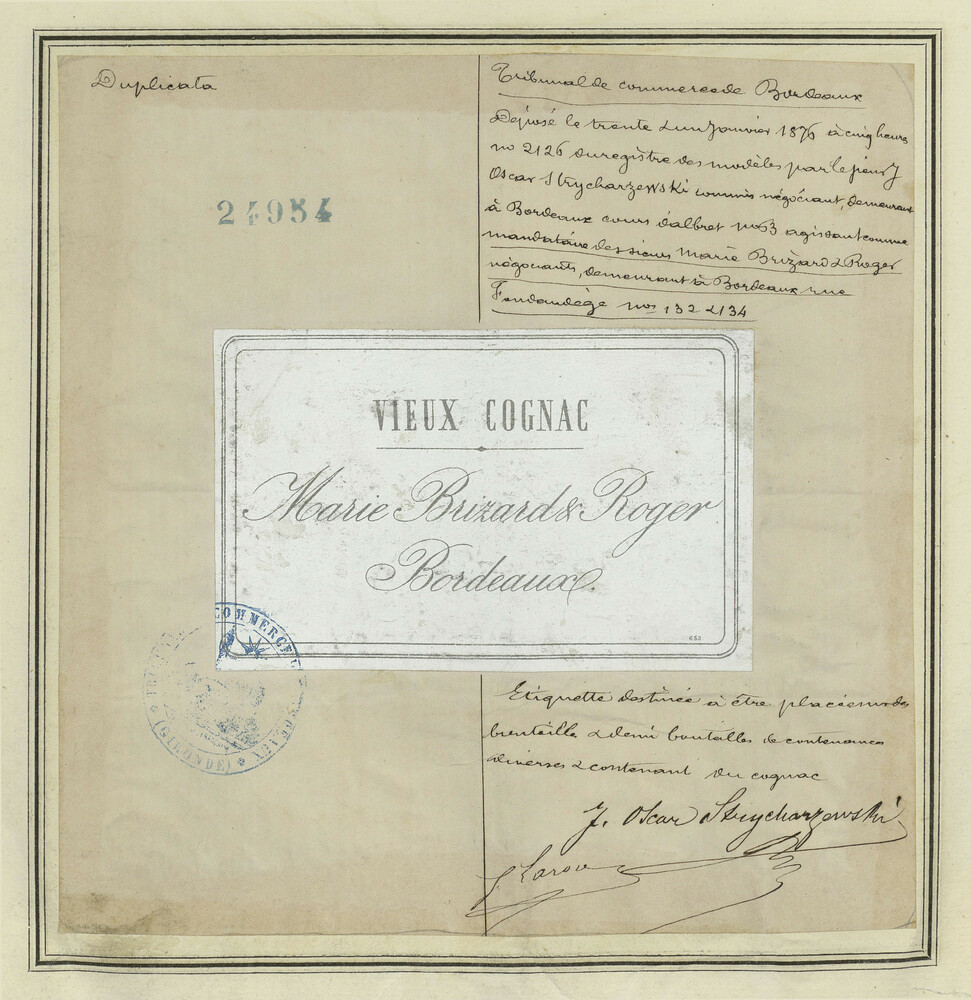 Duplicata
24954
Tribunal de commerce de Bordeaux
Déposé le trente & un Janvier 1876 à cinq heures
no 2126 du registre des modèles par le sieur J
Oscar Strycharzewski commis négociant, demeurant
à Bordeaux cours d'albret no 63 agissant comme
mandataire des sieurs Marie Brizard & Roger
négociants, demeurant à Bordeaux rue
Fondaudège nos 132 & 134
VIEUX COGNAC
Marie Brizard & Roger
Bordeaux.
653
TRIBUNAL DE COMMERCE DE BORDEAUX
(GIRONDE)
Etiquette destinée à être placée sur des
bouteille & demi bouteilles de contenances
diverses & contenant du cognac
J. Oscar Strycharzewski